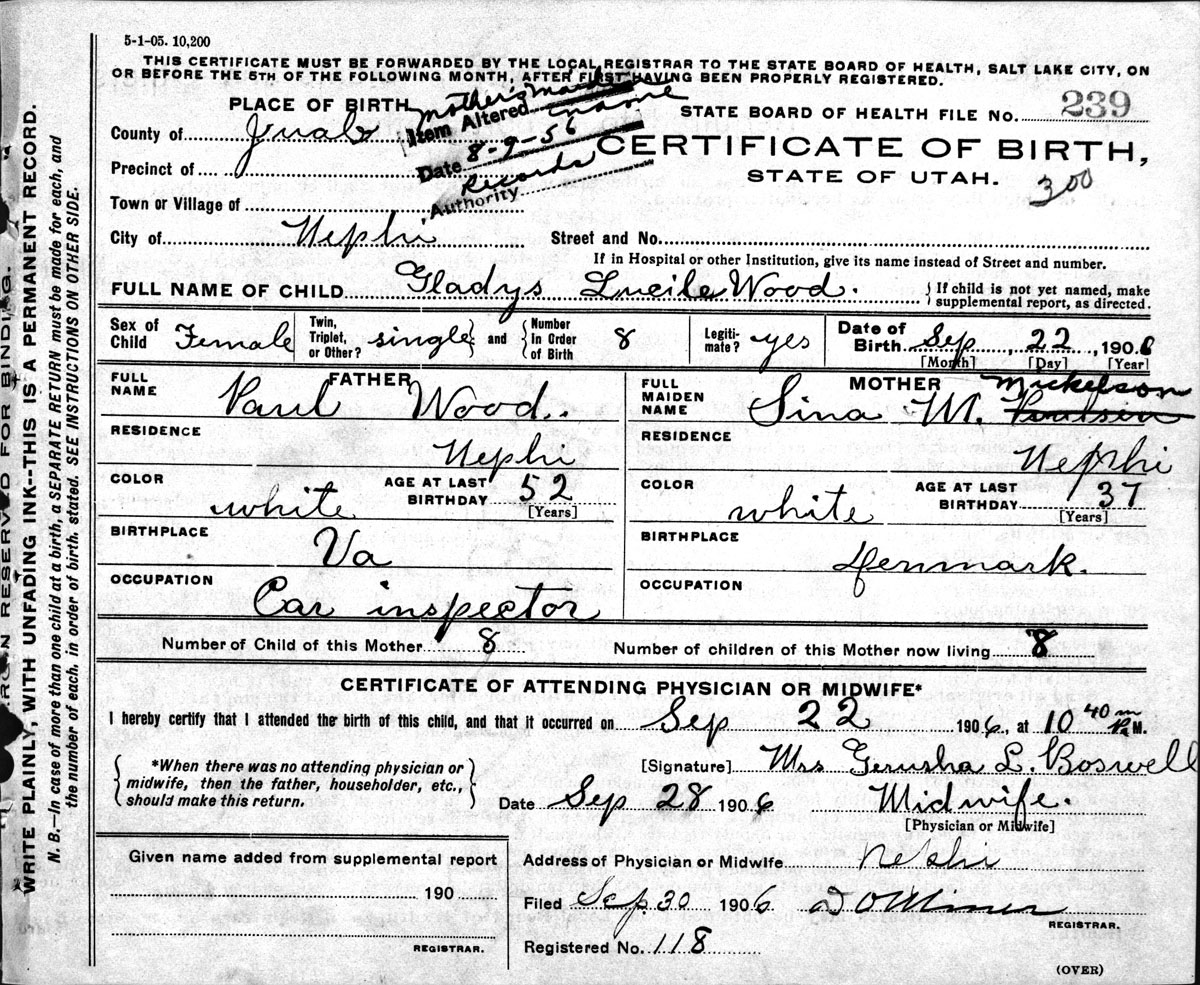 5-1-05. 10,200
THIS CERTIFICATE MUST BE FORWARDED BY THE LOCAL REGISTRAR TO THE STATE BOARD OF HEALTH, SALT LAKE CITY, ON
OR BEFORE THE 5TH OF THE FOLLOWING MONTH, AFTER FIRST HAVING BEEN PROPERLY REGISTERED.
PLACE OF BIRTH
STATE BOARD OF HEALTH FILE NO. 239
County of Juab
mother's maiden
Item Altered name
Date 8-9-56
Records
Authority
CERTIFICATE OF BIRTH,
STATE OF UTAH.
300
Precinct of
Town or Village of
City of Nephi Street and No.
If in Hospital or other Institution, give its name instead of Street and number.
FULL NAME OF CHILD Gladys Lucile Wood. If child is not yet named, make
supplemental report, as directed.
Sex of Child Female Twin, Triplet, or Other? single and Number In Order of Birth 8 Legiti-mate? yes Date of Birth Sep, 22, 1906
[Month] [Day] [Year]
FATHER
FULL NAME Paul Wood.
RESIDENCE
Nephi
COLOR white AGE AT LAST BIRTHDAY 52
[Years]
BIRTHPLACE Va
OCCUPATION
Car inspector
MOTHER
FULL MAIDEN NAME Sina M. Poulsen Mickelson
RESIDENCE
Nephi
COLOR white AGE AT LAST BIRTHDAY 37
[Years]
BIRTHPLACE
Denmark.
OCCUPATION
Number of Child of this Mother 8 Number of children of this Mother now living 8
CERTIFICATE OF ATTENDING PHYSICIAN OR MIDWIFE*
I hereby certify that I attended the birth of this child, and that it occurred on Sep 22 1906, at 10 40 M.
*When there was no attending physician or
midwife, then the father, householder, etc.,
should make this return.
[Signature] Mrs Gerusha L. Boswell
Date Sep 28 1906 Midwife.
[Physician or Midwife]
Given name added from supplemental report
190
REGISTRAR.
Address of Physician or Midwife Nephi
Filed Sep 30 1906 Miner
REGISTRAR.
Registered No. 118
(OVER)
RESERVED FOR BINDING.
WRITE PLAINLY, WITH UNFADING INK--THIS IS A PERMANENT RECORD.
N. B.—In case of more than one child at a birth, a SEPARATE RETURN must be made for each, and
the number of each, in order of birth, stated. SEE INSTRUCTIONS ON OTHER SIDE.